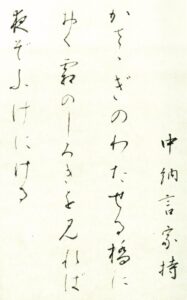 中納言家持
かさゝぎのわたせる橋に
おく霜のしろきを見れば
夜ぞふけにける